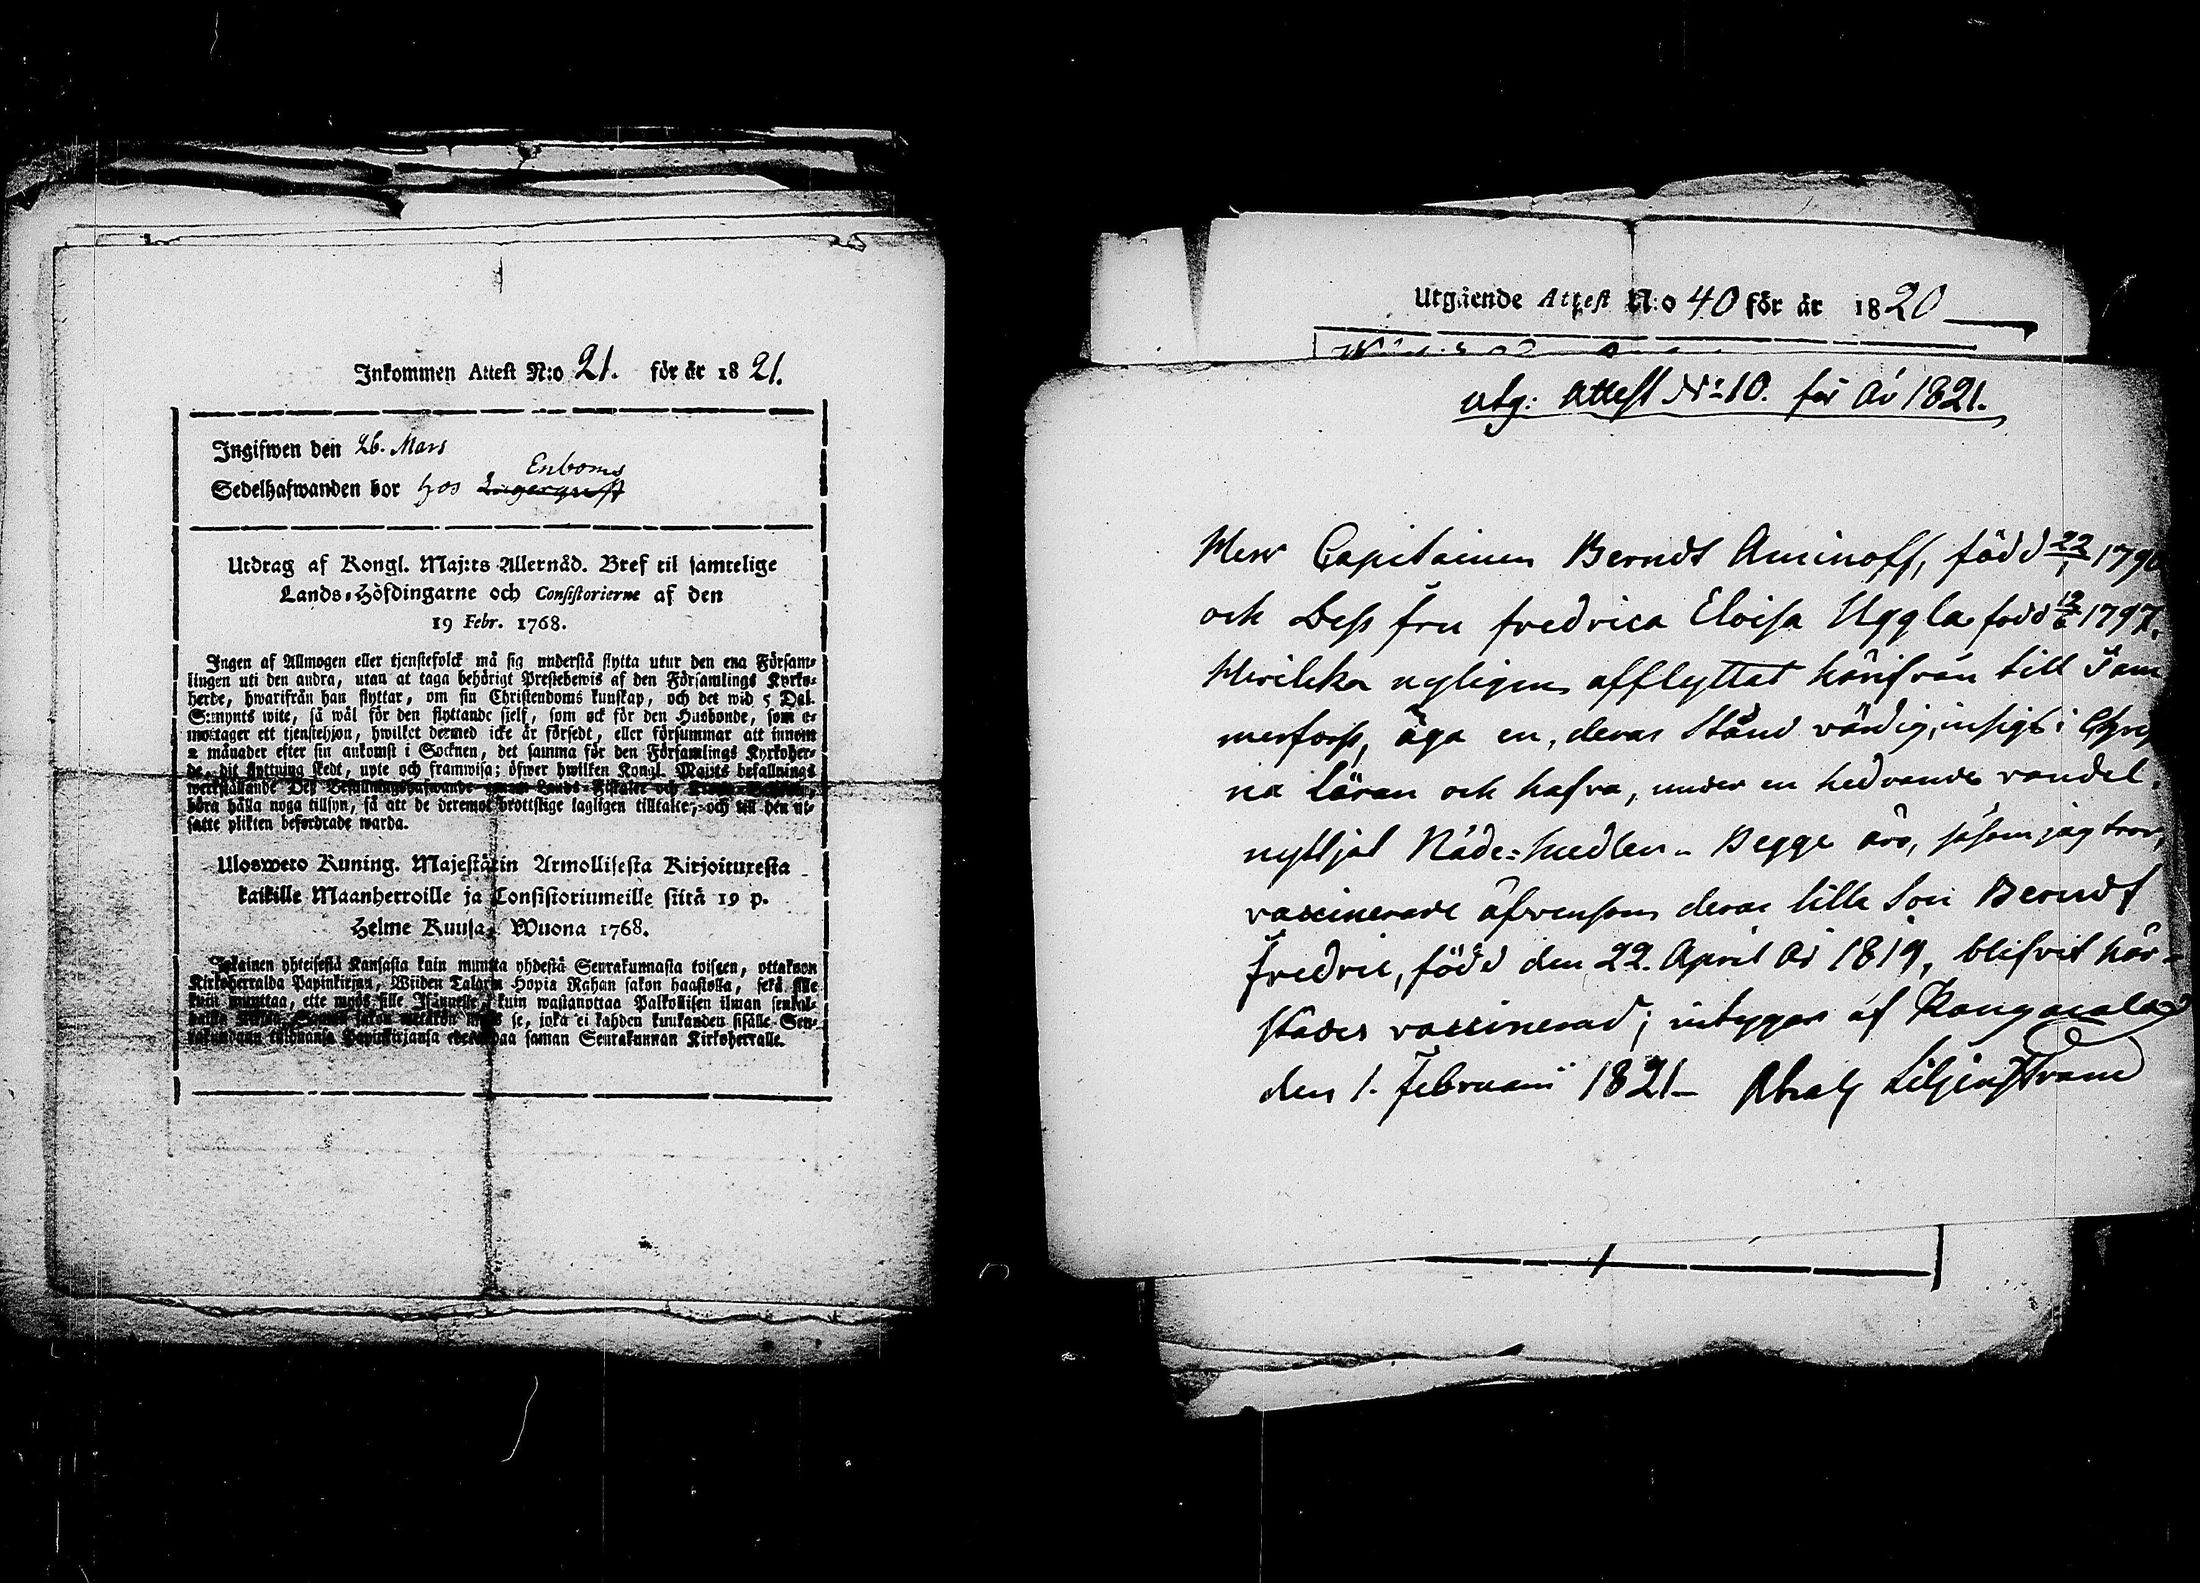 Inkommen Attest N:o 21. för år 1821.
Ingifwen den 26. Mars
Enboms
Sedelhafwanden bor hos Lagerqvist
Utdrag af Kongl. Maj:ts Allernåd. Bref til samtelige
Lands-Höfdingarne och Consistorierne af den
19 Febr. 1768.
Ingen af Allmogen eller tjenstefolck må sig understå flytta utur den ena Försam-
lingen uti den andra, utan at taga behörigt Prestebewis af den Församlings Kyrko-
herde, hwarifrån han flyttar, om sin Christendoms kunskap, och det wid 5 Dal.
S:mynts wite, så wäl för den flyttande sielf, som ock för den Husbonde, som e-
mottager ett tjenstehjon, hwilket dermed icke är försedt, eller försummar att innom
2 månader efter sin ankomst i Socknen, det samma för den Församlings Kyrkoher-
de, dit flyttning skedt, upte och framwisa; öfwer hwilken Kongl. Maj:ts befallnings
werkställande Deß Befallningshafwande genom Lands-Fiskaler och
böra hålla noga tillsyn, så att de deremot brottslige lagligen tilltalte, och till den ut-
satte plikten befordrade warda.
Ulosweto Kuning. Majestätin Armollisesta Kirjoituxesta
kaikille Maanherroille ja Consistoriumeille siitä 19 p.
Helme Kuusa. Wuona 1768.
Jokainen yhteisestä Kansasta kuin muutta yhdestä Seurakunnasta toiseen, ottakoon
Kirkoherralda Papinkirjan, Wiiden Talarin Hopia Rahan sakon haastolla, sekä sille
kuin muuttaa, ette myös sille Isännelle, kuin wastanottaa Palkollisen ilman senkal-
se, joka ei kahden kuukauden sisälle Seu-
Papinkirjansa saman Seurakunnan Kirkoherralle.
Utgående Attest N:o 40 för år 1820
utg: attest No 10. för år 1821.
Herr Capitainen Berndt Aminoff, född 22/1 179
och Dess fru Fredrica Eloisa Uggla född 1797.
Hwilka nyligen afflyttat härifrån till Tam
merforss, äga en, deras Stånd värdig, insigt i Chris
na Läran och hafva, under en hedrande vandel,
nyttjat Nåde-Medlen. Begge äro, såsom jag tror,
vaccinerade äfvensom deras lilla Son Berndt
Fredric, född den 22. April År 1819, blifvit här-
städes vaccinerad; intygas af Kangasala
den 1. Februarii 1821. Abrah Liljenstrand